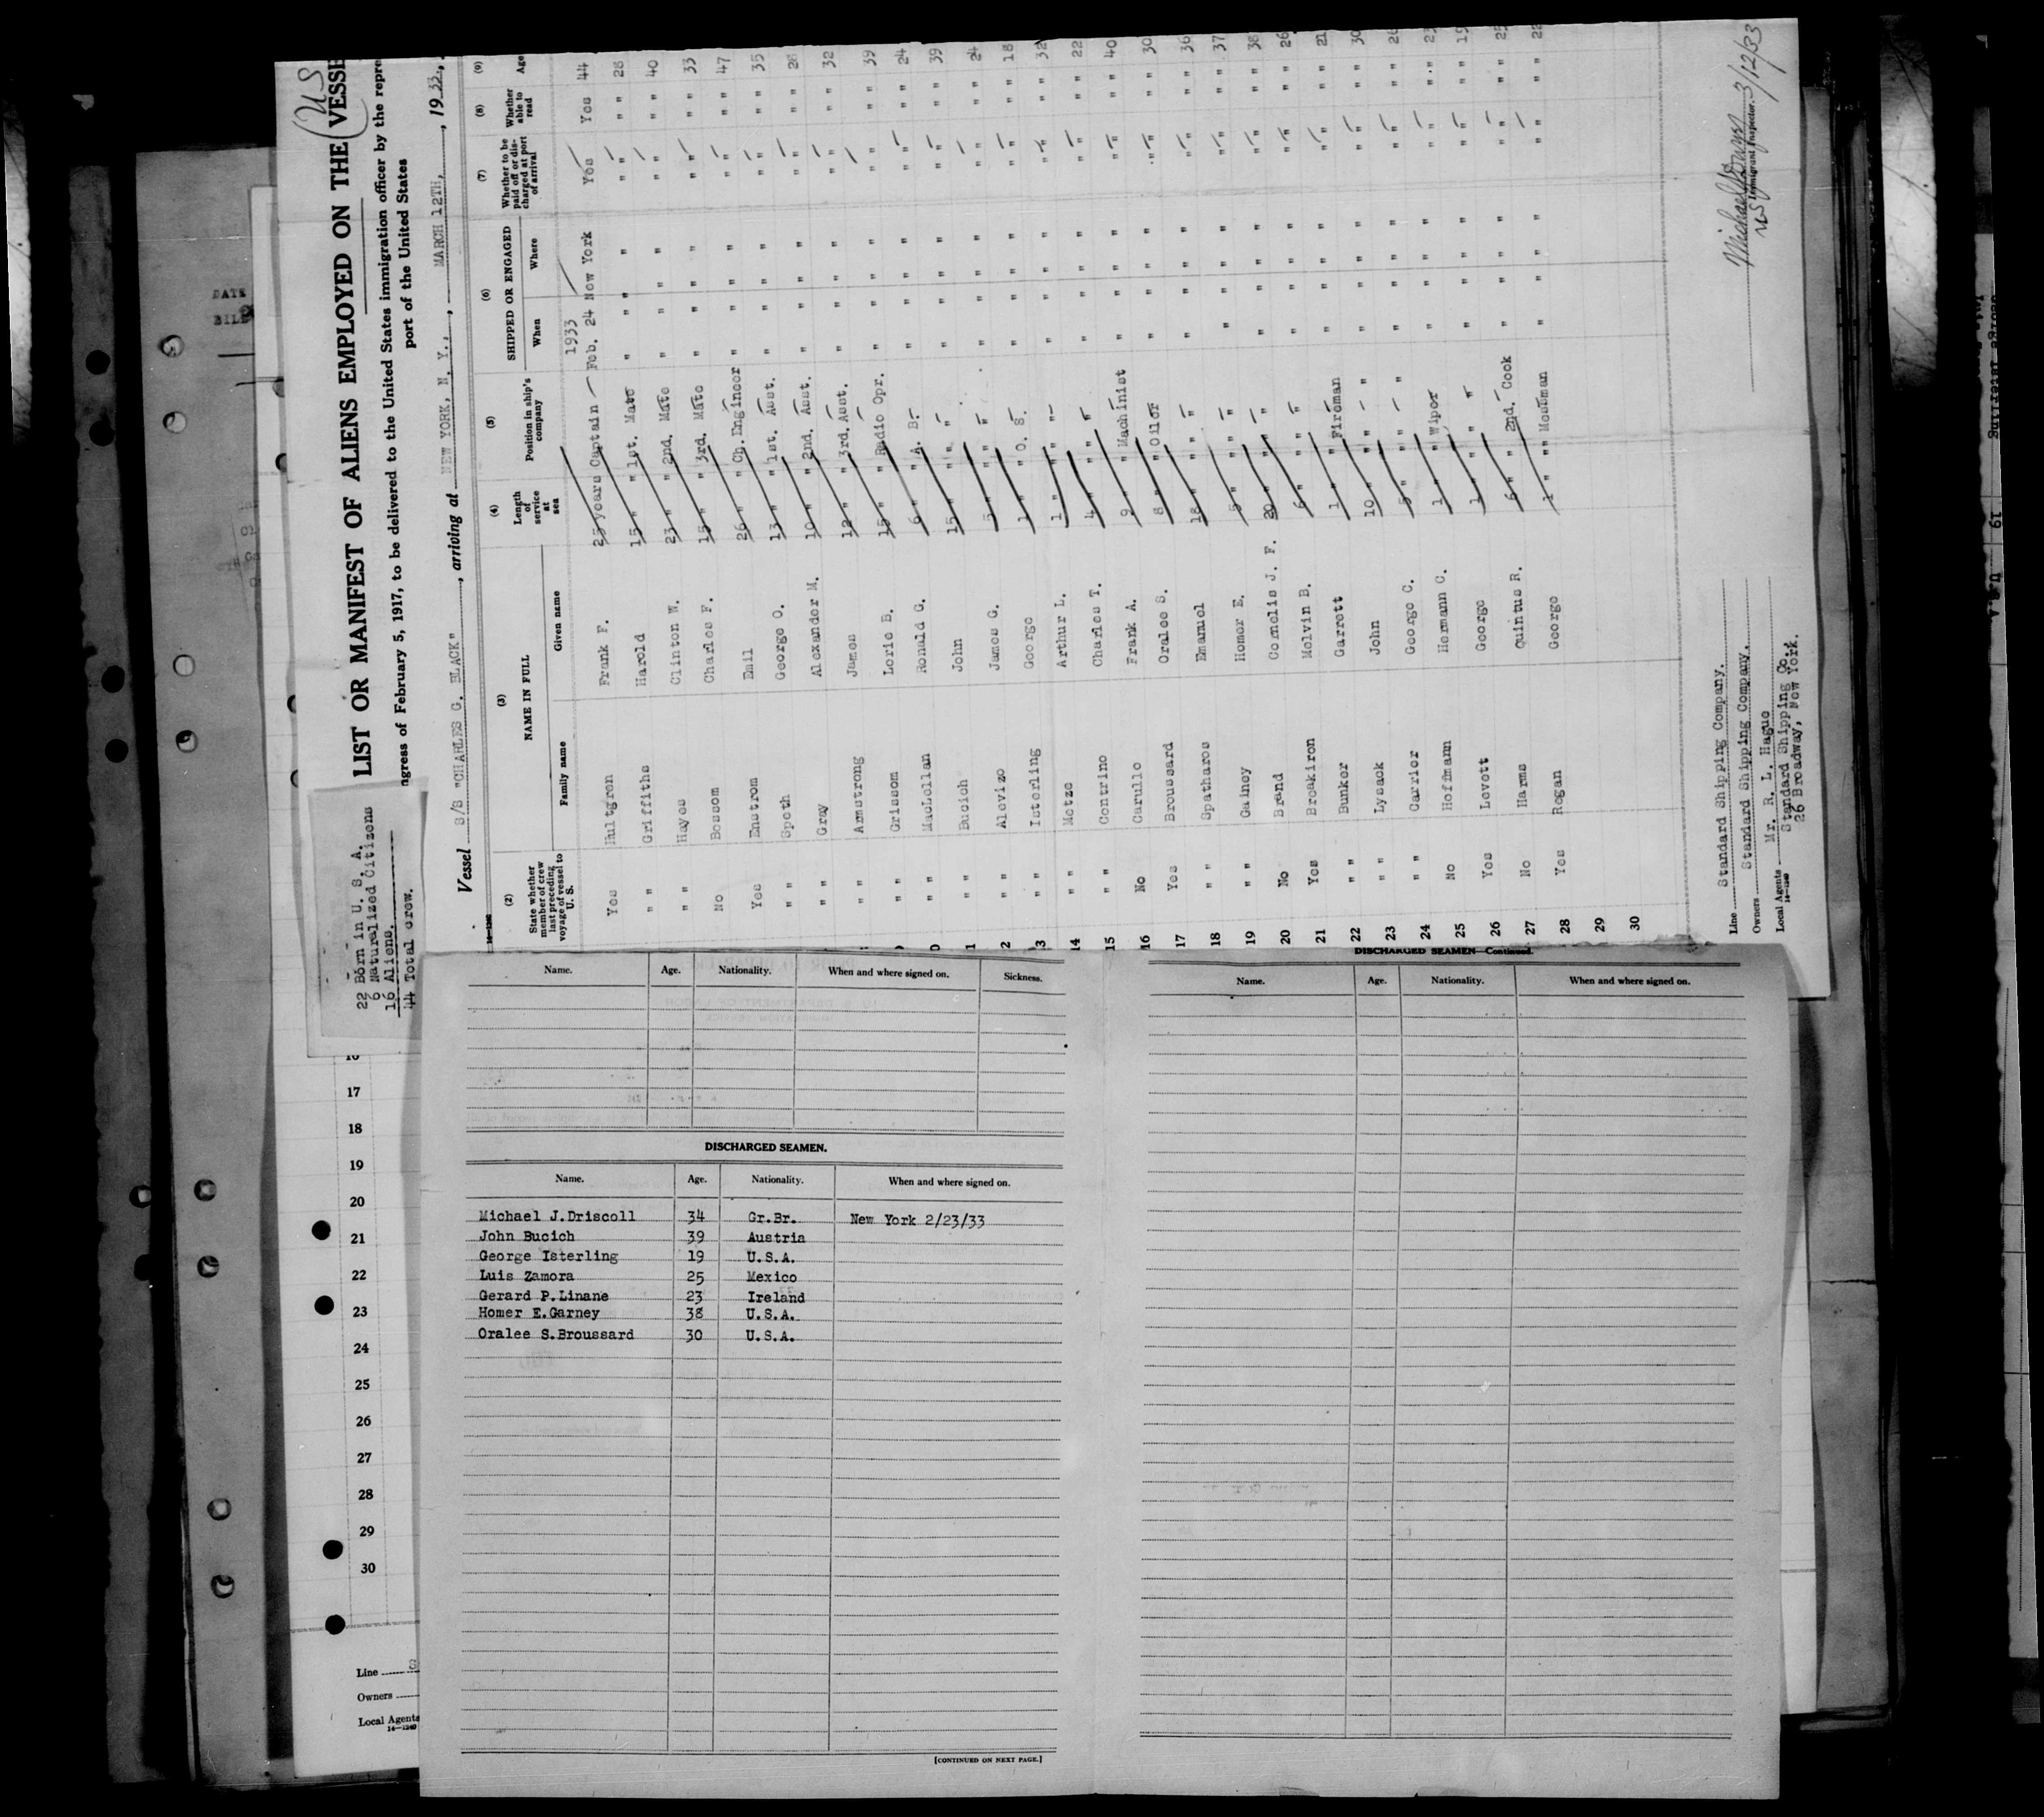 22 Born in U. S. A.
6 Naturalized Citizens
16 Aliens.
44 Total crew.
(US
LIST OR MANIFEST OF ALIENS EMPLOYED ON THE VESSE
ngress of February 5, 1917, to be delivered to the United States immigration officer by the repre
port of the United States
Vessel S/S "CHARLES G. BLACK", arriving at NEW YORK, N. Y., MARCH 12TH, 1933,
(2) (3) (4) (5) (6) (7) (8) (9)
State whether member of crew last preceding voyage of vessel to U. S. NAME IN FULL Family name Given name Length of service at sea Position in ship's company SHIPPED OR ENGAGED When Where Whether to be paid off or discharged at port of arrival Whether able to read Age
1933
Yes Hultgren Frank F. 25 years Captain Feb. 24 New York Yes Yes 44
" " Griffiths Harold 15 " " 1st. Mate " " " " " " " " 28
" " Hayes Clinton W. 23 " " 2nd. Mate " " " " " " " " 40
No Bossom Charles F. 15 " " 3rd. Mate " " " " " " " " 33
Yes Enstrom Emil 26 " " Ch. Engineer " " " " " " " " 47
" " Speth George O. 13 " " 1st. Asst. " " " " " " " " 35
" " Gray Alexander M. 10 " " 2nd. Asst. " " " " " " " " 28
" " Armstrong James 12 " " 3rd. Asst. " " " " " " " " 32
" " Grissom Lorie B. 15 " " Radio Opr. " " " " " " " " 39
" " MacLellan Ronald G. 6 " " A. B. " " " " " " " " 24
" " Bucich John 15 " " " " " " " " " " " 39
" " Alevizo James G. 5 " " " " " " " " " " " 24
" " Isterling George 1 " " O. S. " " " " " " " " 18
14 " " Metze Arthur L. 1 " " " " " " " " " " " 32
15 " " Contrino Charles T. 4 " " " " " " " " " " " 22
16 No Carullo Frank A. 9 " " Machinist " " " " " " " " 40
17 Yes Broussard Oralee S. 8 " " Oiler " " " " " " " " 30
18 " " Spatharos Emanuel 18 " " " " " " " " " " " 36
19 " " Gainey Homer E. 5 " " " " " " " " " " " 37
20 No Brand Cornelis J. F. 20 " " " " " " " " " " " 38
21 Yes Breakiron Melvin B. 6 " " " " " " " " " " " 26
22 " " Bunker Garrett 1 " " Fireman " " " " " " " " 21
23 " " Lysack John 10 " " " " " " " " " " " 30
24 " " Carrier George C. 5 " " " " " " " " " " "
25 No Hoffmann Hermann C. 1 " " Wiper " " " " " " " " 23
26 Yes Levett George 1 " " " " " " " " " " " 19
27 No Harms Quintus R. 6 " " 2nd. Cook " " " " " " " " 25
28 Yes Regan George 1 " " Messman " " " " " " " " 22
29
30
Line Standard Shipping Company.
Owners Standard Shipping Company.
Local Agents Mr. R. L. Hague
Standard Shipping Co.
26 Broadway, New York.
14—1240
3/12/33
US Immigrant Inspector.
Name. Age. Nationality. When and where signed on. Sickness.
DISCHARGED SEAMEN.
Name. Age. Nationality. When and where signed on.
Michael J.Driscoll 34 Gr.Br. New York 2/23/33
John Bucich 39 Austria
George Isterling 19 U.S.A.
Luis Zamora 25 Mexico
Gerard P.Linane 23 Ireland
Homer E.Garney 38 U.S.A.
Oralee S.Broussard 30 U.S.A.
[CONTINUED ON NEXT PAGE.]
DISCHARGED SEAMEN—Continued.
Name. Age. Nationality. When and where signed on.
16
17
18
19
20
21
22
23
24
25
26
27
28
29
30
Line
Owners
Local Agents
14—1240
DATE
BILL
U.S.A. 19